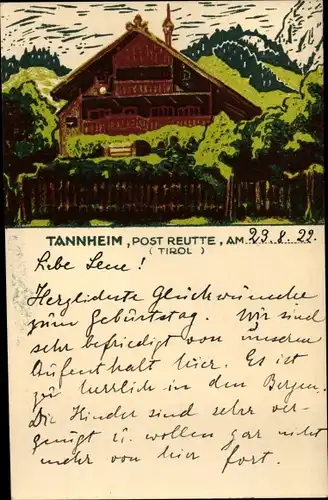 TANNHEIM, POST REUTTE, AM 23.8.22.
(TIROL)
Liebe Lene!
Herzlichste Glückwünsche
zum Geburtstag. Wir sind
sehr befriedigt von unserem
Aufenthalt hier. Es ist
zu herrlich in den Bergen.
Die Kinder sind sehr ver-
gnügt u. wollen gar nicht
mehr von hier fort.